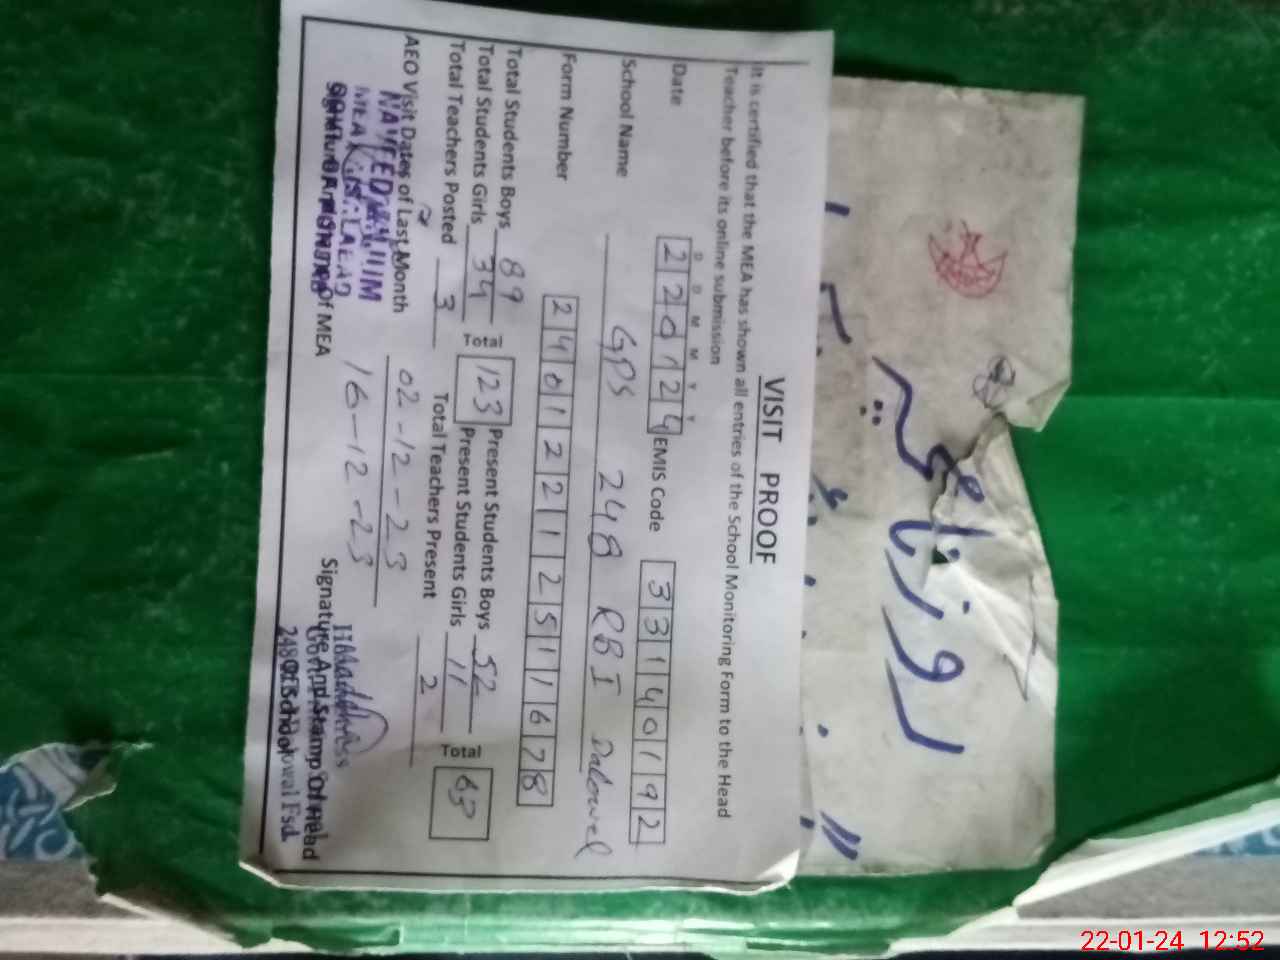 VISIT PROOF
It is certified that the MEA has shown all entries of the School Monitoring Form to the Head
Teacher before its online submission
D D M M Y Y
Date 220124 EMIS Code 33140192
School Name GPS 248 RBI Dalowal
Form Number 24012212511678
Total Students Boys 89 Total 123 Present Students Boys 52 Total 63
Total Students Girls 34 Present Students Girls 11
Total Teachers Posted 3 Total Teachers Present 2
AEO Visit Dates of Last Month 02-12-23
16-12-23
Signature And Stamp Of MEA
Signature And Stamp Of Head
Of School
روزنامچہ
22-01-24 12:52